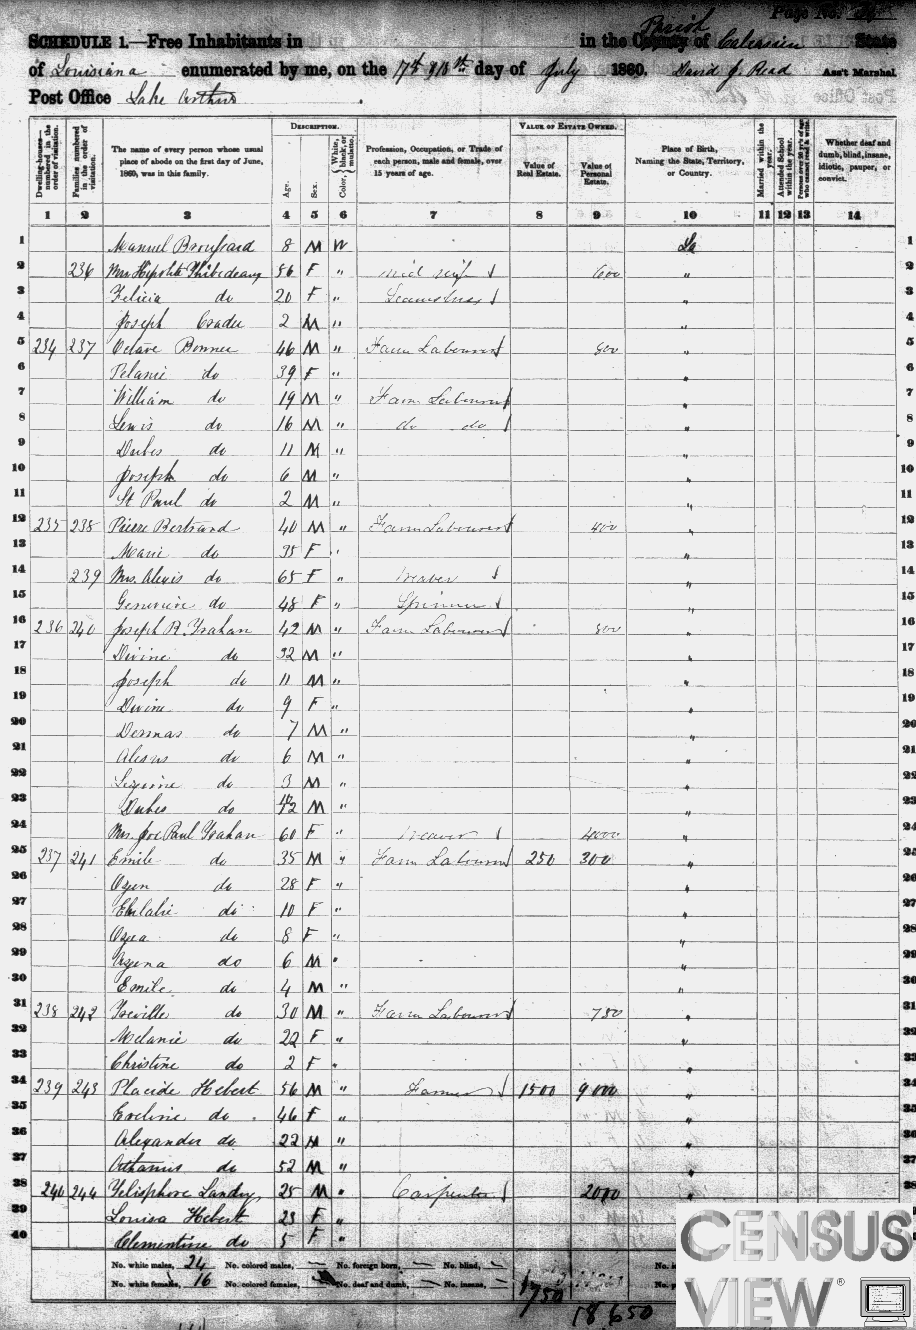 Page No.
SCHEDULE 1.—Free Inhabitants in in the County of Parish Calcasieu State
of Louisiana enumerated by me, on the 7th & 10th day of July 1860. David J. Read Ass't Marshal.
Post Office Lake Arthur
Dwelling-houses—numbered in the order of visitation. Families numbered in the order of visitation. The name of every person whose usual place of abode on the first day of June, 1860, was in this family. DESCRIPTION. Age. Sex. Color, {White, black, or mulatto. Profession, Occupation, or Trade of each person, male and female, over 15 years of age. VALUE OF ESTATE OWNED. Value of Real Estate. Value of Personal Estate. Place of Birth, Naming the State, Territory, or Country. Married within the year. Attended School within the year. Persons over 20 y'rs of age who cannot read & write. Whether deaf and dumb, blind, insane, idiotic, pauper, or convict.
1 2 3 4 5 6 7 8 9 10 11 12 13 14
1 Manuel Broussard 8 M W La 1
2 236 Mrs Hipolite Thibedeaux 56 F " mid wife / 600 " 2
3 Felicia do 20 F " Seamstress / " 3
4 Joseph 2 M " " 4
5 234 237 Octave Bonner 46 M " Farm Labourer / 800 " 5
6 do 39 F " " 6
7 William do 19 M " Farm Labourer / " 7
8 Lewis do 16 M " do do / " 8
9 Dubes do 11 M " " 9
10 Joseph do 6 M " " 10
11 St Paul do 2 M " " 11
12 235 238 Pierre Bertrand 40 M " Farm Labourer / 400 " 12
13 Marie do 35 F " " 13
14 239 Mrs. Alexis do 65 F " Weaver / " 14
15 Genevieve do 48 F " Spinner / " 15
16 236 240 Joseph R. Trahan 42 M " Farm Labourer / 800 " 16
17 Divine do 32 M " " 17
18 Joseph do 11 M " " 18
19 Divine do 9 F " " 19
20 Dermas do 7 M " " 20
21 do 6 M " " 21
22 do 3 M " " 22
23 Dubes do 12 M " " 23
24 Mrs. Joe Paul Trahan 60 F " Weaver / 4000 " 24
25 237 241 Emile do 35 M " Farm Labourer / 250 300 " 25
26 Ozen do 28 F " " 26
27 do 10 F " " 27
28 Ozea do 8 F " " 28
29 Azena do 6 M " " 29
30 Emile do 4 M " " 30
31 238 242 Treville do 30 M " Farm Labourer / 750 " 31
32 Melanie do 22 F " " 32
33 Christine do 2 F " " 33
34 239 243 Placide Hebert 56 M " Farmer / 1500 9000 " 34
35 Eveline do 46 F " " 35
36 Alexander do 22 M " " 36
37 do 52 M " " 37
38 240 244 Telisphore Landry 25 M " Carpenter / 2000 " 38
39 Louisa Hebert 23 F "
40 Clementine do 5 F "
No. white males, 24 No. colored males, — No. foreign born, — No. blind, —
No. white females, 16 No. colored females, — No. deaf and dumb, — No. insane, —
1750
18650
CENSUS
VIEW®